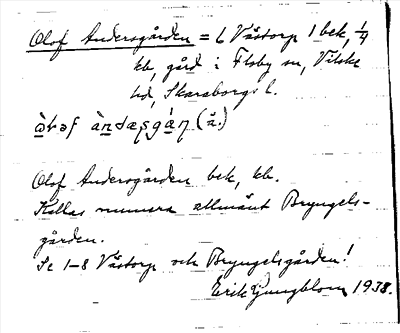 Olof Andersgården = L Västorp 1 bek, 1/4
kb, gård i Floby sn, Vilske
hd, Skaraborgs l.
(å.)
Olof Andersgården bek, kb.
Kallas numera allmänt Bryngels-
gården.
Se 1-8 Västorp och Bryngelsgården!
Erik Ljungblom 1938.